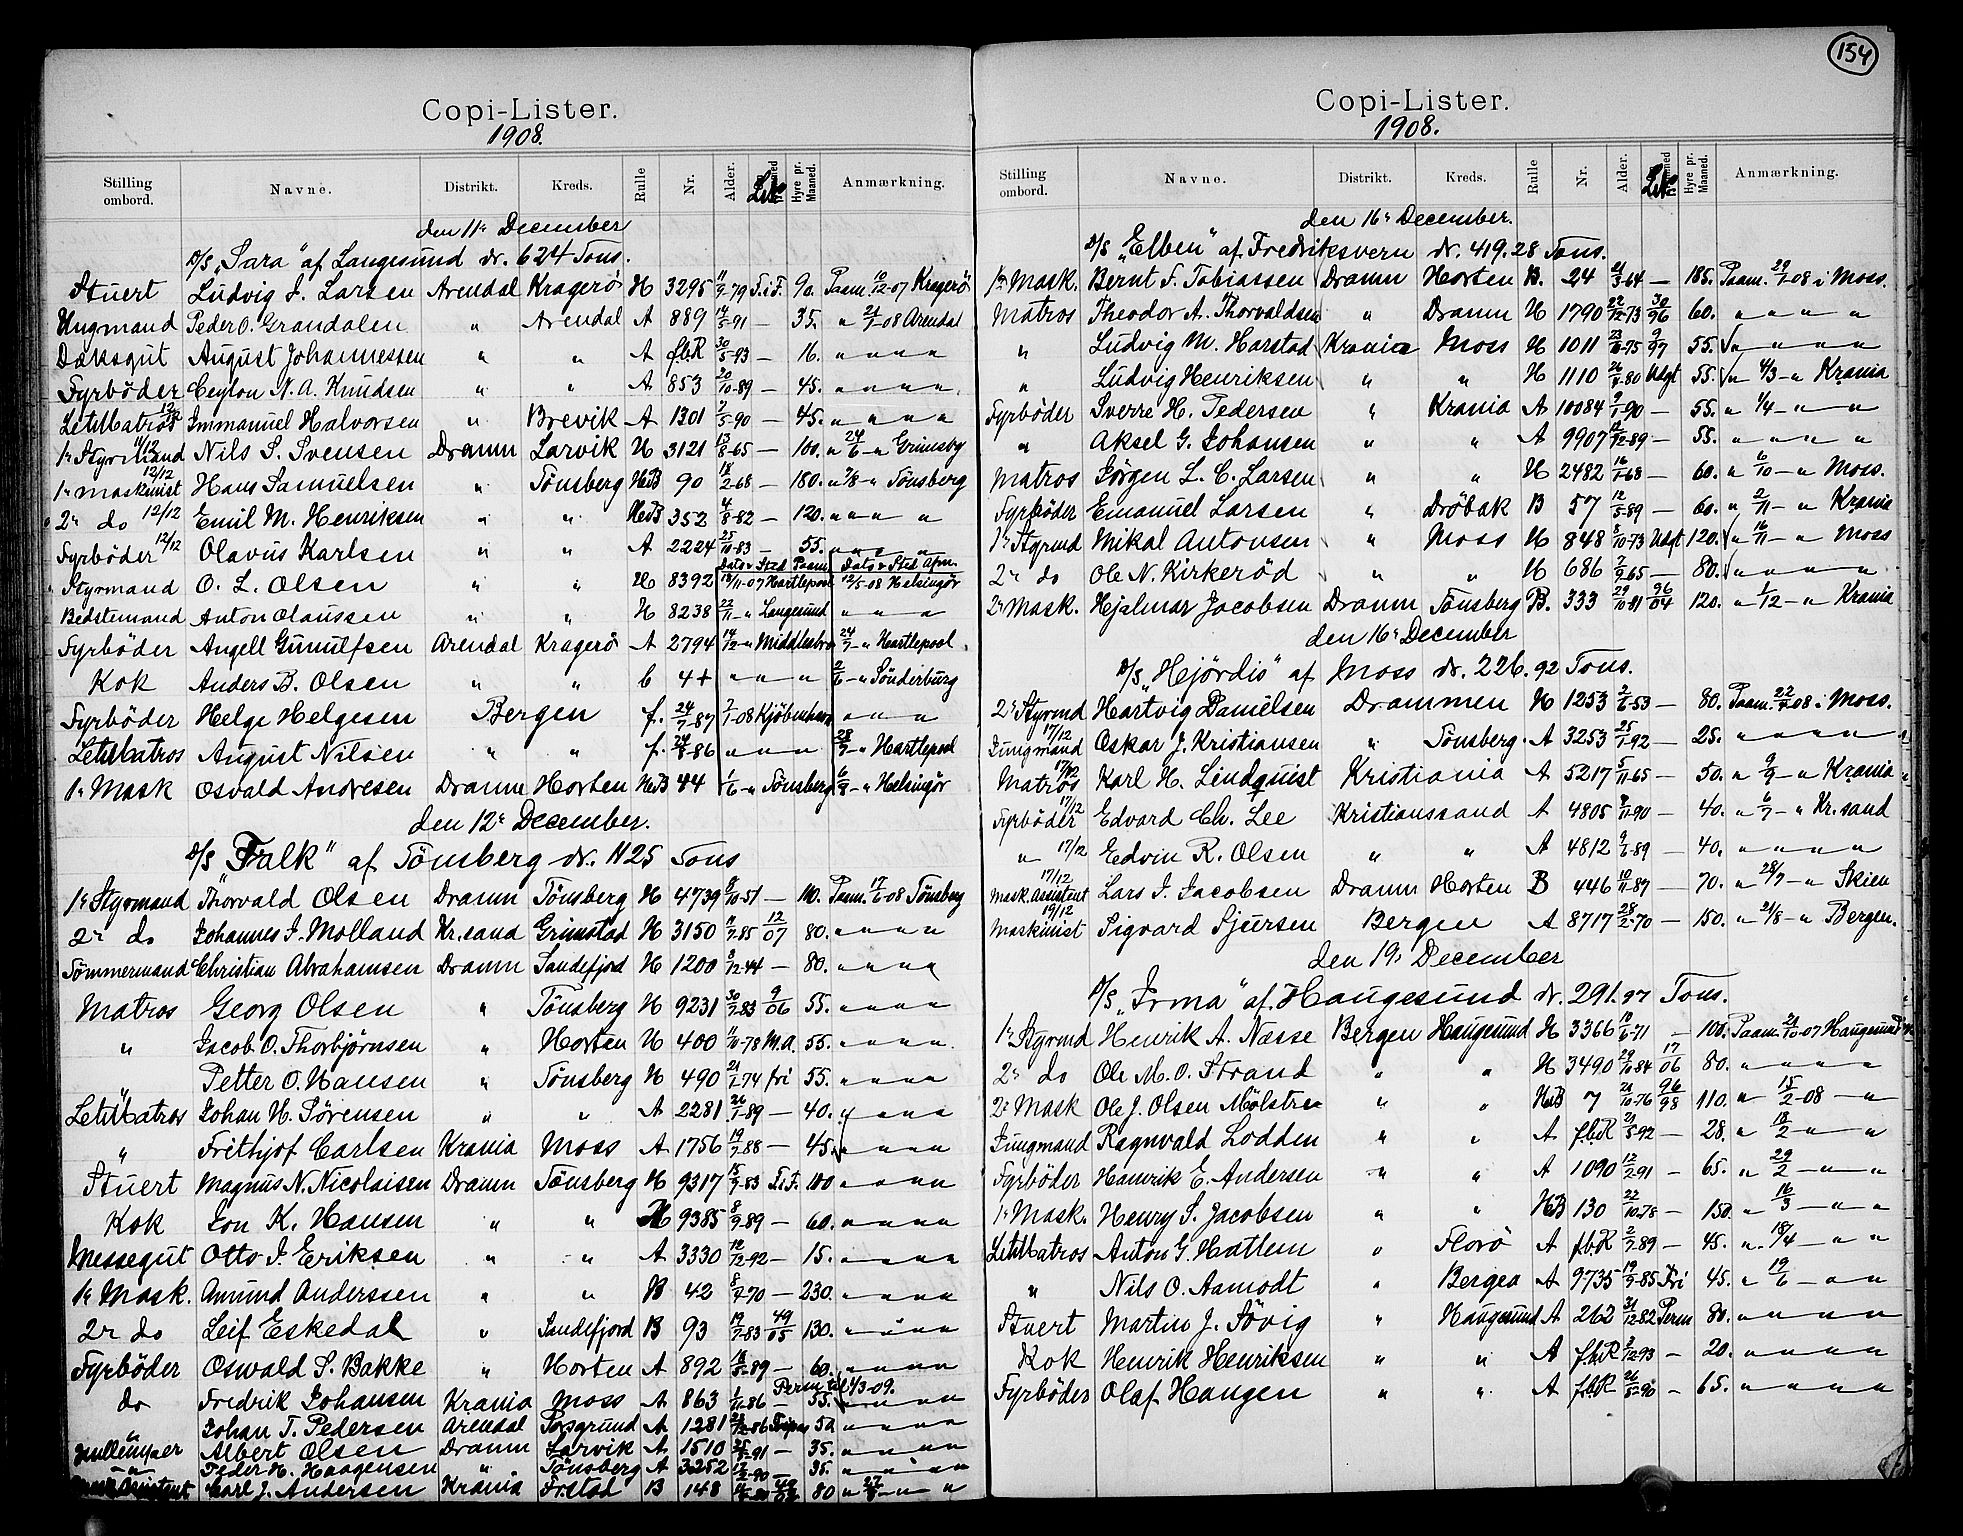 154
Copi-Lister.
1908.
Stilling ombord. Navne. Distrikt. Kreds. Rulle Nr. Alder. Hyre pr. Maaned. Anmærkning.
den 11' December
D/S „Sara" af Langesund dr. 624 Tons.
Stuert Ludvig J. Larsen Arendal Kragerö H 3295 11/9-79 F.i.F. 90. Paam. 10/12-07 Kragerö
Ungmand Peder O. Grandalen " Arendal A 889 14/5-91 — 35. " 21/7-08 Arendal
Dæksgut August Johannessen " " A fbR 30/5-93 — 16. " " " "
Fyrböder Ceylon N. A. Knudsen " " A 853 20/10-89 — 45. " " " "
LetMatros Immanuel Halvorsen " Brevik A 1301 7/5-90 — 45. " " " "
1' Styrmand Nils S. Svensen Dramn Larvik H 3121 13/8-65 — 100. " 24/6 - " Grimsby
1' maskinist 12/12 Hans Samuelsen " Tönsberg H&B 90 18/2-68 — 180. " 7/8 - " Tönsberg
2' do 12/12 Emil M. Henriksen " " H&B 352 4/8-82 — 120. " " " "
Fyrböder 12/12 Olavus Karlsen " " A 2224 25/10-83 — 55. " " " "
Dato & Sted Paam. Dato & Sted Afm.
Styrmand O. L. Olsen " " H 8392 13/11-07 Hartlepool 12/5-08 Helsingör
Bedstemand Anton Olaussen " " H 8238 22/11 - " Langesund " " "
Fyrböder Angell Gunulfsen Arendal Kragerö A 2794 14/12 - " Middlesbro 24/7 - " Hartlepool
Kok Anders B. Olsen " " C 4+ " " " 2/6 - " Sönderburg
Fyrböder Helge Helgesen Bergen f. 24/7-87 7/1-08 Kjöbenhavn " " "
LetMatros August Nilsen " " f. 24/8-86 " " " 28/7 - " Hartlepool
1' Mask Osvald Andresen Dramn Horten H&B 44 1/6 - " Tönsberg 6/8 - " Helsingör
den 12' December.
D/S „Falk" af Tönsberg dr. 1125 Tons
1' Styrmand Thorvald Olsen Dramn Tönsberg H 4739 8/10-51 — 110. Paam. 17/6-08 Tönsberg
2' do Johannes J. Molland Kr.sand Grimstad H 3150 11/7-85 12/07 80. " " " "
Tömmermand Christian Abrahamsen Dramn Sandefjord H 1200 8/12-44 — 80. " " " "
Matros Georg Olsen " Tönsberg H 9231 30/7-83 9/06 55. " " " "
" Jacob O. Thorbjörnsen " Horten H 400 11/10-78 M.A. 55. " " " "
" Petter O. Hansen " Tönsberg H 490 21/7-74 fri 55. " " " "
LetMatros Johan H. Sörensen " " A 2281 26/1-89 — 40. " " " "
" Frithjof Carlsen Krania Moss A 1756 19/7-88 — 45. " " " "
Stuert Magnus N. Nicolaisen Dramn Tönsberg H 9317 15/9-83 F.i.F. 100 " " " "
Kok Jon K. Hansen " " H 9385 8/9-89 — 60. " " " "
Messegut Otto J. Eriksen " " A 3330 19/12-92 — 15. " " " "
1' Mask. Amund Anderssen " " B 42 8/7-70 — 230. " " " "
2' do Leif Eskedal " Sandefjord B 93 19/7-83 49/05 130. " " " "
Fyrböder Oswald S. Bakke " Horten A 892 18/5-89 — 60. " " " "
Perm til 1/3-09.
do Fredrik Johansen Krania Moss A 863 1/11-86 — 55. " " " "
" Johan T. Pedersen Arendal Porsgrund A 1281 50 " " " "
Kullemper Albert Olsen Dramn Larvik A 1510 — 35. " " " "
" Peder H. Haagensen " Tönsberg A 3252 — 35. " " " "
Mask Assistent Carl J. Andersen Krania Fr.stad B 148 80 " 27/8 - " "
Copi-Lister.
1908.
Stilling ombord. Navne. Distrikt. Kreds. Rulle Nr. Alder. Hyre pr. Maaned. Anmærkning.
den 16' December.
D/S „Elben" af Fredriksvern dr. 419.28 Tons.
1' Mask. Bernt F. Tobiassen Dramn Horten B. 24 21/3-64 — 185. Paam. 29/1-08 i Moss.
Matros Theodor A. Thorvaldsen " Dramn H 1790 22/12-73 30/96 60. " " " "
" Ludvig M. Harstad Krania Moss H 1011 23/10-75 9/97 55. " " " "
" Ludvig Henriksen " " H 1110 26/8-80 Udgt 55. " 4/3 - " Krania
Fyrböder Sverre H. Pedersen " Krania A 10084 9/1-90 — 55. " 1/4 - " "
" Aksel G. Johansen " " A 9907 12/12-89 — 55. " " " "
Matros Jörgen L. C. Larsen " " H 2482 16/1-68 — 60. " 6/10 - " Moss.
Fyrböder Emanuel Larsen " Dröbak B 57 12/5-89 — 60. " 2/11 - " Krania
1' Styrmd Mikal Antonsen " Moss H 848 8/10-73 Udgt 120. " 16/11 - " Moss
2' do Ole N. Kirkeröd " " H 686 7/9-65 — 80. " " " "
2' Mask. Hjalmar Jacobsen Dramn Tönsberg B. 333 29/10-81 96/04 120. " 1/12 - " Krania
den 16' December
D/S „Hejördis" af Moss dr. 226.92 Tons.
2' Styrmd Hartvig Danielsen Drammen H 1253 2/6-53 — 80. Paam. 22/7-08 i Moss.
17/12 Jungmand Oskar J. Kristiansen " Tönsberg A 3253 25/1-92 — 25. " " " "
17/12 Matros Karl H. Lindquist Kristiania A 5217 5/11-65 — 50. " 9/9 - " Krania
17/12 Fyrböder Edvard Ch. Lee Kristianssand A 4805 8/11-90 — 40. " 6/7 - " Kr.sand
" 17/12 Edvin R. Olsen " " A 4812 9/6-89 — 40. " " " "
17/12 Mask. Assistent Lars J. Jacobsen Dramn Horten B 446 10/11-87 — 70. " 28/7 - " Skien
19/12 Maskinist Sigvard Sjursen Bergen A 8717 28/2-70 — 150. " 21/8 - " Bergen.
den 19' December
D/S „Irma" af Haugesund dr. 291.97 Tons.
1' Styrmd Henrik A. Næsse Bergen Haugesund H 3366 10/6-71 — 100. Paam. 21/10-07 Haugesund
2' do Ole M. O. Strand " " H 3490 29/10-84 17/06 80. " " " "
2' Mask Ole J. Olsen Mölstre " " H&B 7 21/10-76 96/98 110. " 15/2-08 - "
Jungmand Ragnvald Lodden " " A fbR 21/5-92 — 28. " 18/2 - " "
Fyrböder Hanrik E. Andersen " " A 1090 12/2-91 — 65. " 29/2 - " "
1' Mask. Henry S. Jacobsen " " H&B 130 22/10-78 — 150. " 16/3 - " "
LetMatros Anton G. Hatlem " Florö A fbR 2/7-89 — 45. " 18/4 - " "
" Nils O. Aamodt " Bergen A 9735 19/9-85 Fri 45. " 19/6 - " "
Stuert Martin J. Sövig " Haugesund A 262 31/12-82 Perm 80. " " " "
Kok Henrik Henriksen " " A fbR 2/12-93 — 20. " " " "
Fyrböder Olaf Haugen " " A fbR 26/5-90 — 65. " " " "